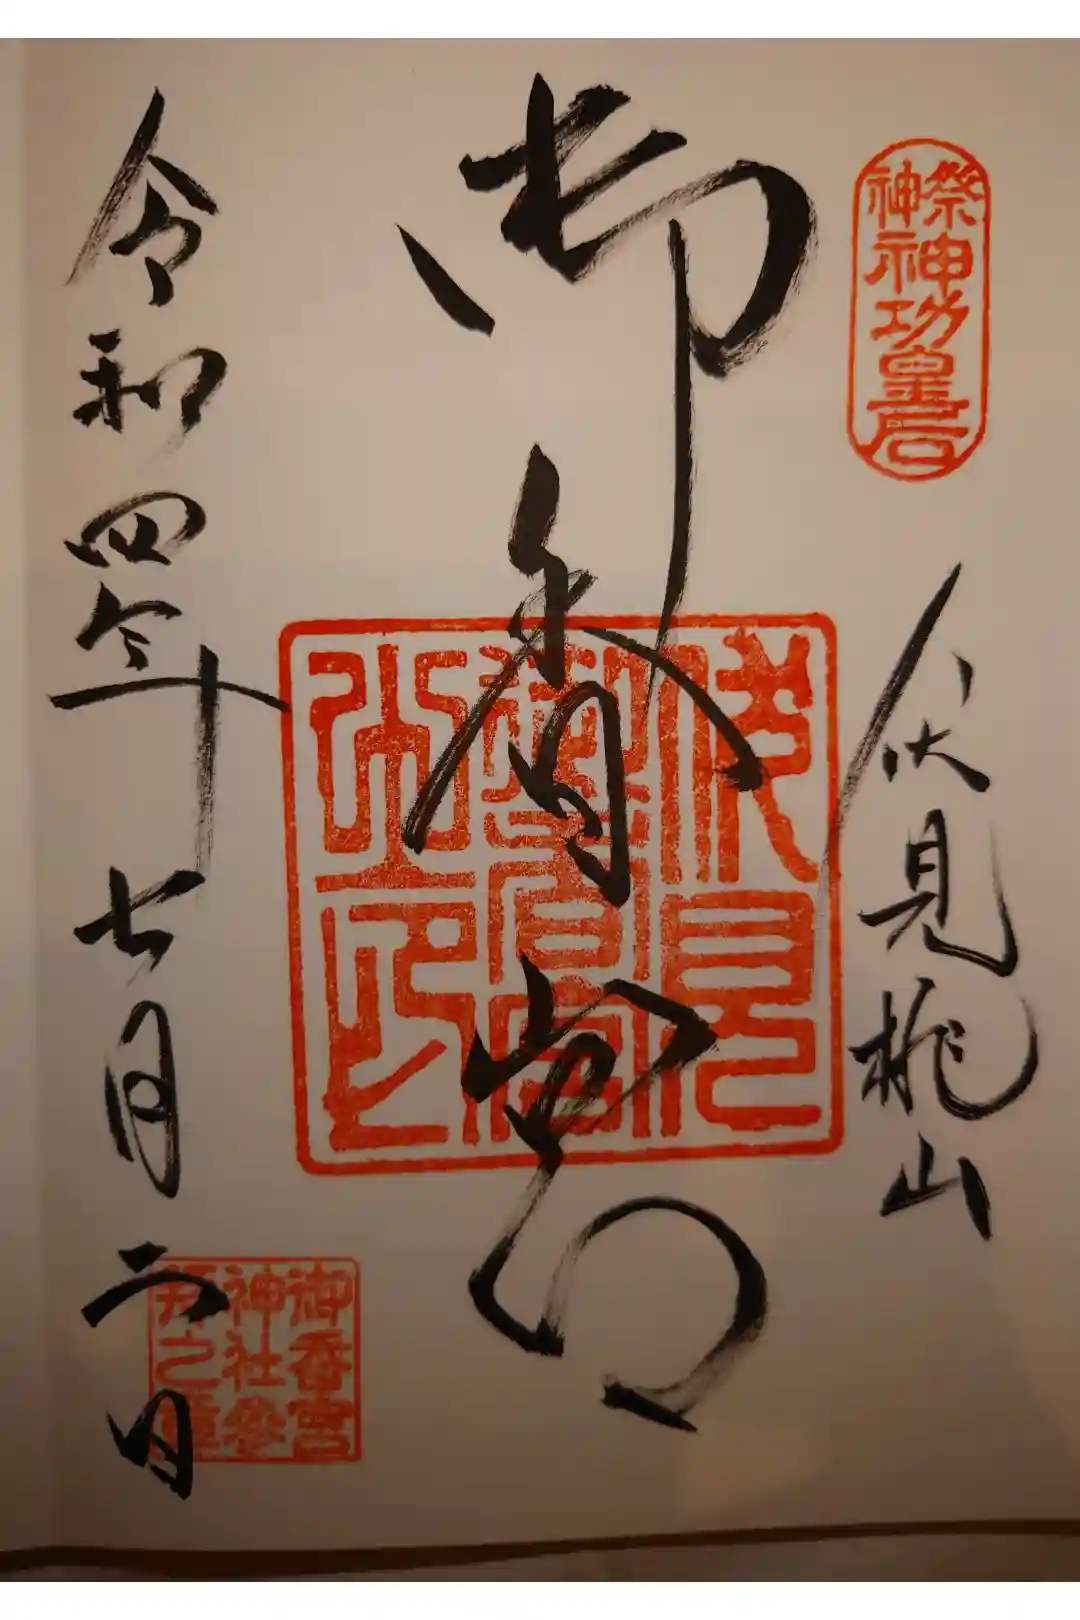 祭神
神功皇后
伏見桃山
御香宮
伏見
御香宮
之印
御香宮
神社参
拝之章
令和四年七月二日